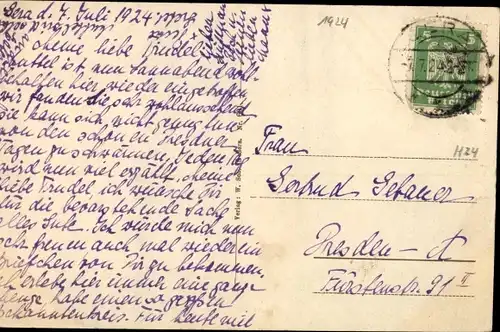 Gera d. 7. Juli 1924
Meine liebe Trudel
Muttel ist nun Sonnabend wohl-
behalten hier wieder eingetroffen
wir fanden sie sehr wohlaussehend
Sie kann sich nicht genug
von den schönen Dresdner
Tagen zu schwärmen, jeden Tag
wird nun viel erzählt. Meine
liebe Trudel ich wünsche Dir
für die bevorstehende Sache
alles Gute. Ich würde mich nun
sehr freuen auch mal wieder ein
Briefchen von Dir zu bekommen,
ich erlebe hier immer eine ganze
Menge, habe einen so großen
Bekanntenkreis. Für heute viel
1924
5 5
H24
Frau
Gertrud Gebauer
Dresden-A
Fürstenstr. 91 II
Verlag: W.